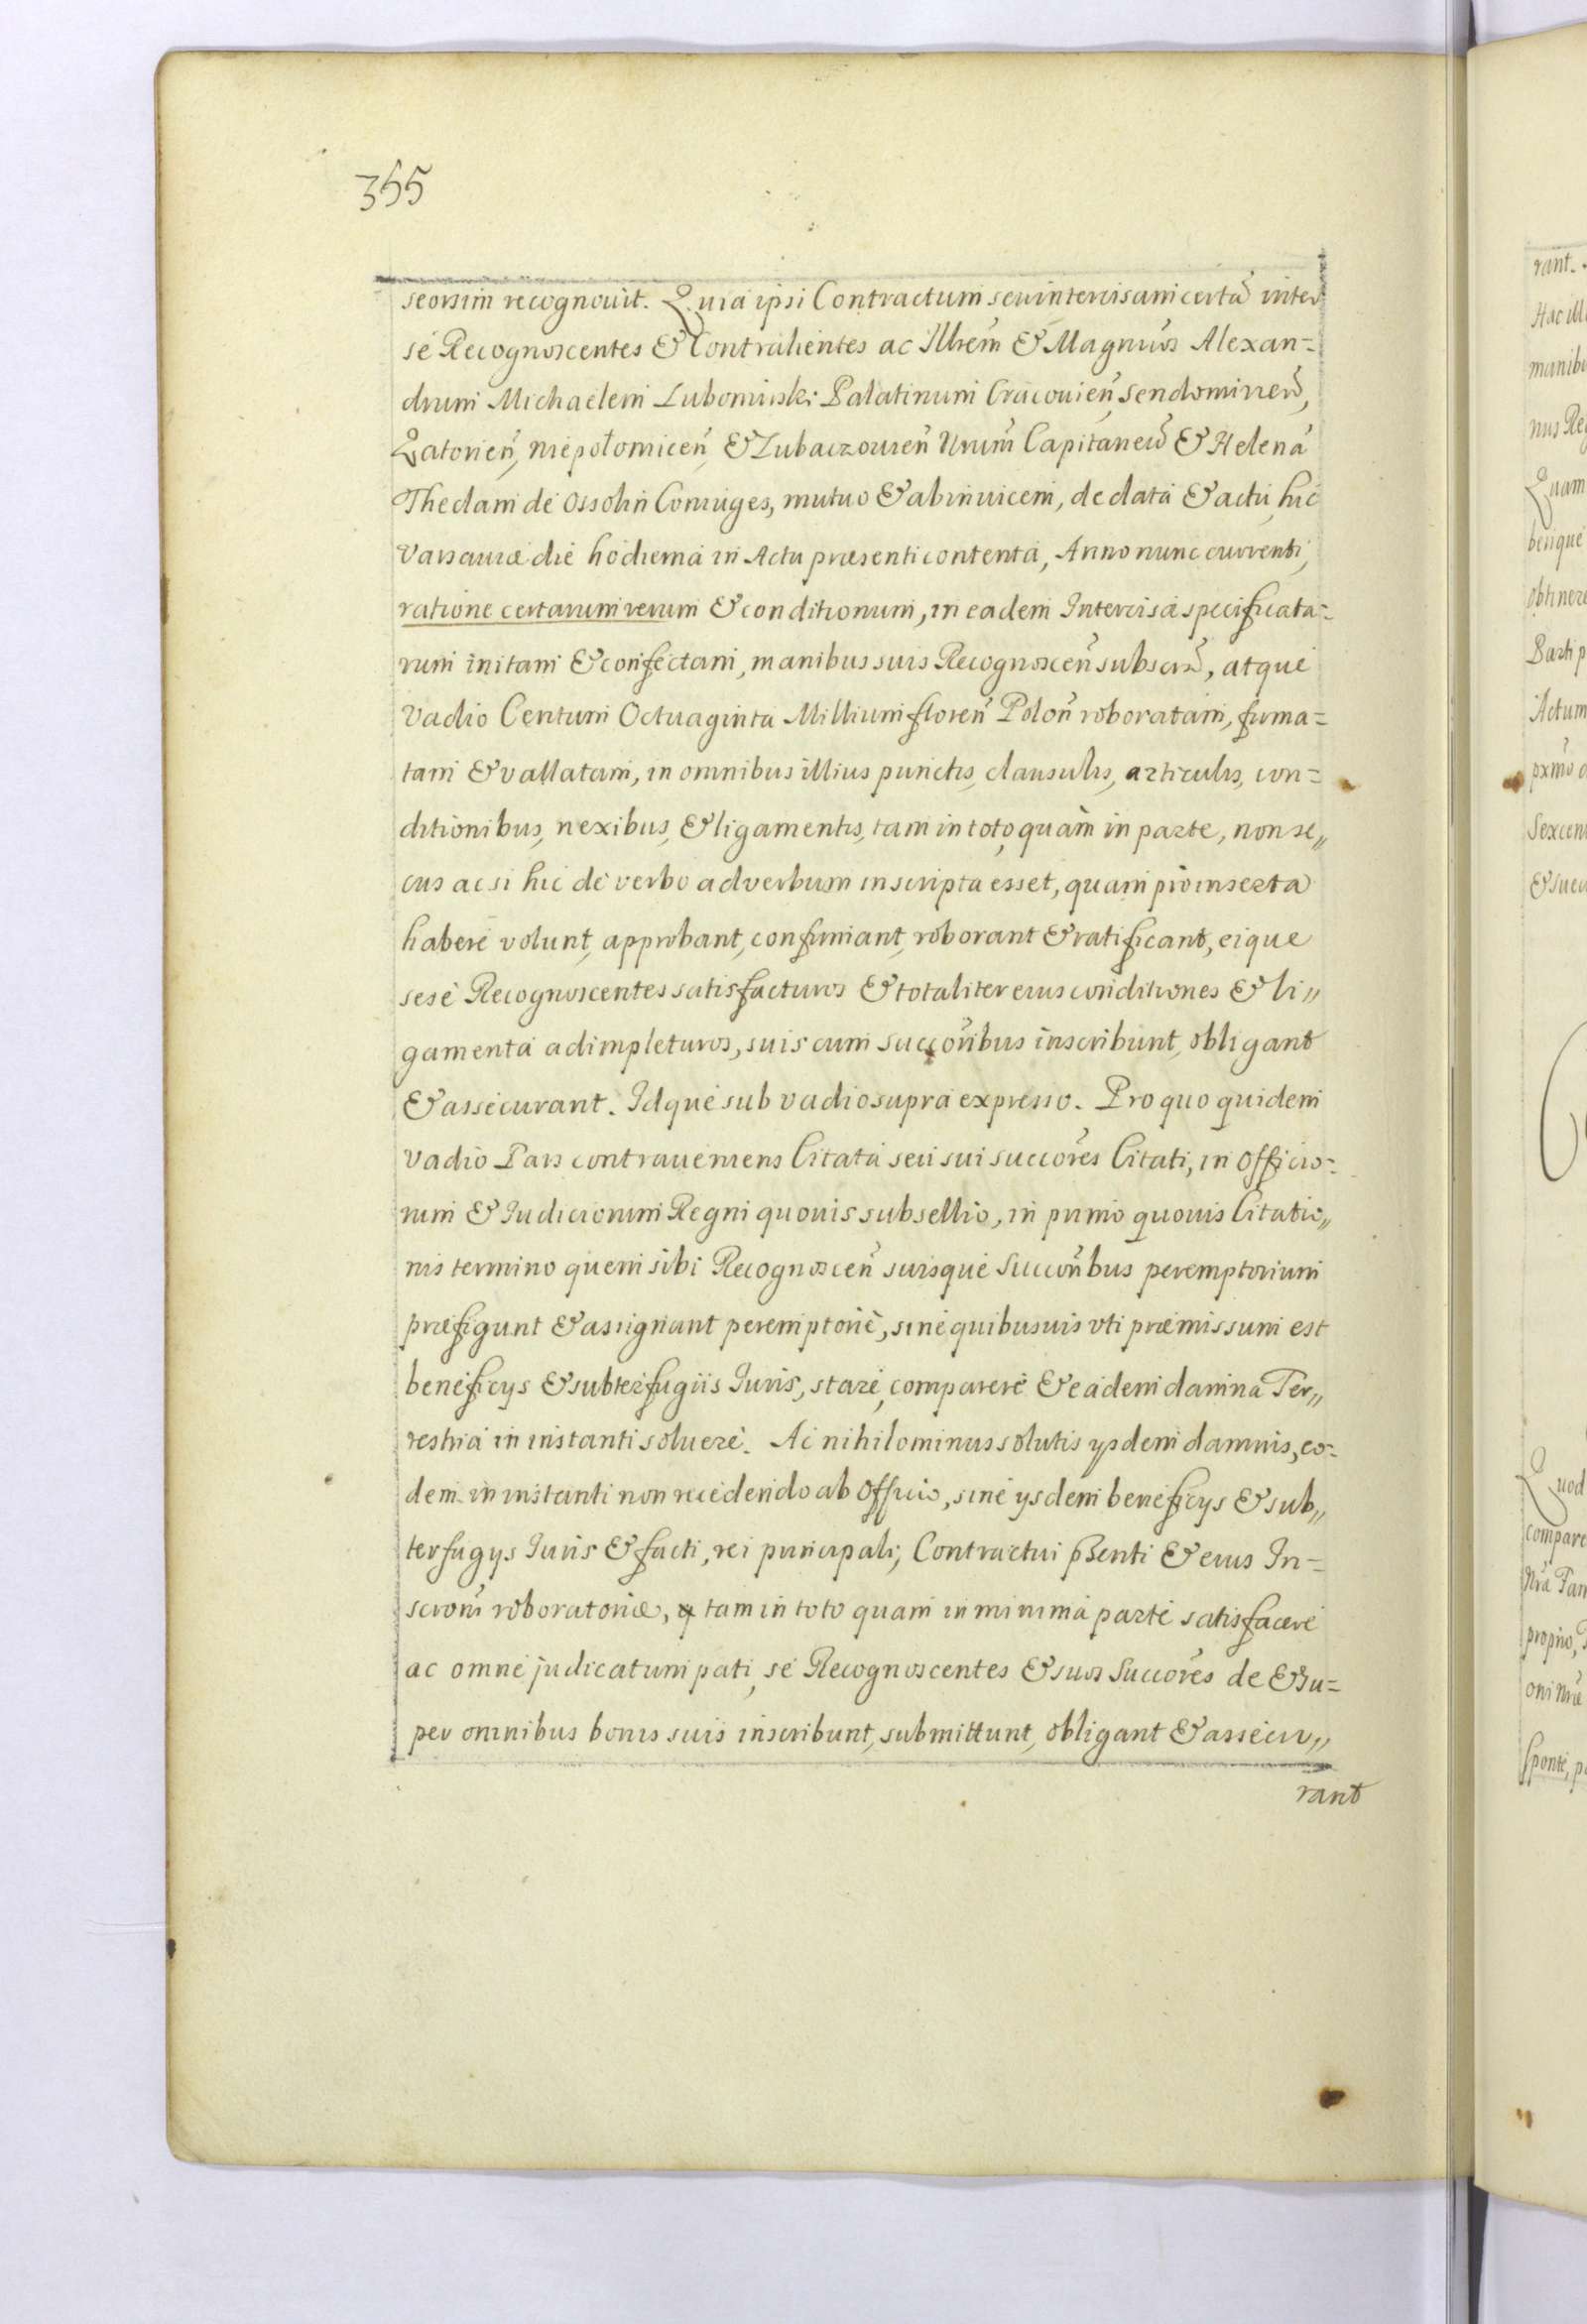 355
seorsim recognovit. Quia ipsi Contractum seu intercisam certā inter
se Recognoscentes & Contrahentes ac Illrem̃ & Magnuos Alexan=
drum Michaelem Lubomirski Palatinum Cracouien̄, Sendomirien̄,
Zatorien̄, Niepołomicen̄, & Lubaczouien̄ Capitaneū & Helenā
Theclam de Ossolin Coniuges, mutuo & ab inuicem, de data & actu hic
Varsauiæ die hodierna in Actu præsenti contenta, Anno nunc currenti,
ratione certarum rerum & conditionum, in eadem Intercisa specificata=
rum initam & confectam, manibus suis Recognoscen̄ subscr̄, atque
vadio Centum Octuaginta Millium floren̄ Polon̄ roboratam, firma=
tam & vallatam, in omnibus illius punctis, clausulis, articulis, con=
ditionibus, nexibus, & ligamentis, tam in toto, quam in parte, non se„
cus ac si hic de verbo ad verbum inscripta esset, quam pro inserta
habere volunt, approbant, confirmant, roborant & ratificant, eique
sese Recognoscentes satisfacturos & totaliter eius conditiones & li„
gamenta adimpleturos, suis cum succoribus inscribunt, obligant
& assecurant. Idque sub vadio supra expresso. Pro quo quidem
vadio Pars contraueniens Citata seu sui succores Citati, in Officio=
rum & Iudiciorum Regni quouis subsellio, in primo quouis Citatio„
nis termino quem sibi Recognoscen̄ suisque Succoribus peremptorium
præfigunt & assignant peremptorie, sine quibusuis vti præmissum est
beneficys & subterfugiis Iuris, stare, comparere & eadem damna Ter„
restria in instanti soluere. Ac nihilominus solutis ysdem damnis, eo=
dem in instanti non recedendo ab Officio, sine ysdem beneficys & sub„
terfugys Iuris & facti, rei principali, Contractui pßenti & eius In=
scroni roboratoriæ, tam in toto quam in minima parte satisfacere
ac omne judicatum pati, se Recognoscentes & suos Succores de & su=
per omnibus bonis suis inscribunt, submittunt, obligant & assecu„
rant